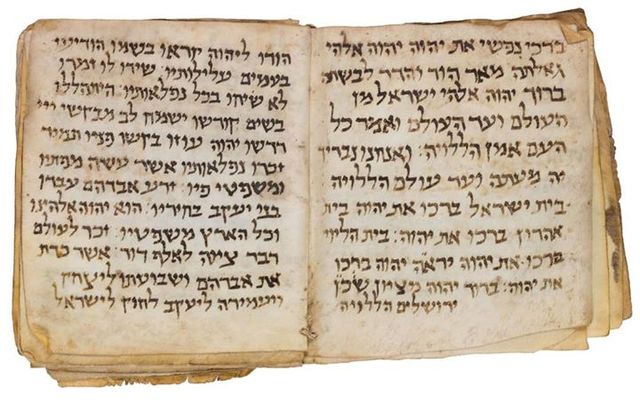 ברכי נפשי את יהוה יהוה אלהי
גדלתה מאד הוד והדר לבשתה
ברוך יהוה אלהי ישראל מן
העולם ועד העולם ואמר כל
העם אמן הללויה: ואנחנו נבריך
יה מעתה ועד עולם הללויה
בית ישראל ברכו את יהוה בית
אהרון ברכו את יהוה: בית הליוי
ברכו את יהוה יראה יהוה ברכו
את יהוה: ברוך יהוה מציון שכין
ירושלים הללויה
הודו ליהוה קראו בשמו הודיעו
בעמים עלילותיו: שירו לו זמרו
לא שיחו בכל נפלאותיו: התהללו
בשים קודשו ישמח לב מבקשי ייי
דרשו יהוה עוזו בקשו פניו תמיד
זכרו נפלאותיו אשר עשה מפתיו
ומשפטי פיו: זרע אברהם עבדו
בני יעקב בחיריו: הוא יהוה אלהינו
וכל הארץ משפטיו: זכר לעולם
דבר ציוה לאלף דור: אשר כרת
את אברהם ושבועתו ליצחק
ויעמידה ליעקב לחוק לישראל